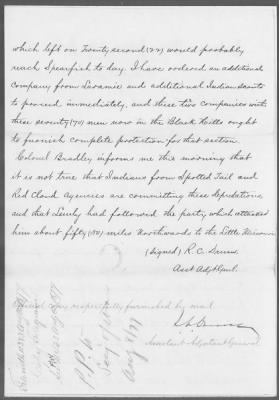 which left on Twenty second (22) would probably
reach Spearfish to day. I have ordered an additional
Company from Laramie and additional Indian Scouts
to proceed immediately, and these two Companies with
these seventy (70) men now in the Black Hills ought
to furnish complete protection for that section.
Colonel Bradley informs me this morning that
it is not true that Indians from Spotted Tail and
Red Cloud Agencies are committing these depredations,
and that Lemly had followed the party, which attacked
him about fifty (50) miles Northwards to the Little Missouri
(Signed) R. C. Drum.
Asst Adjt Genl.
Official copy respectfully furnished by mail
Assistant Adjutant General